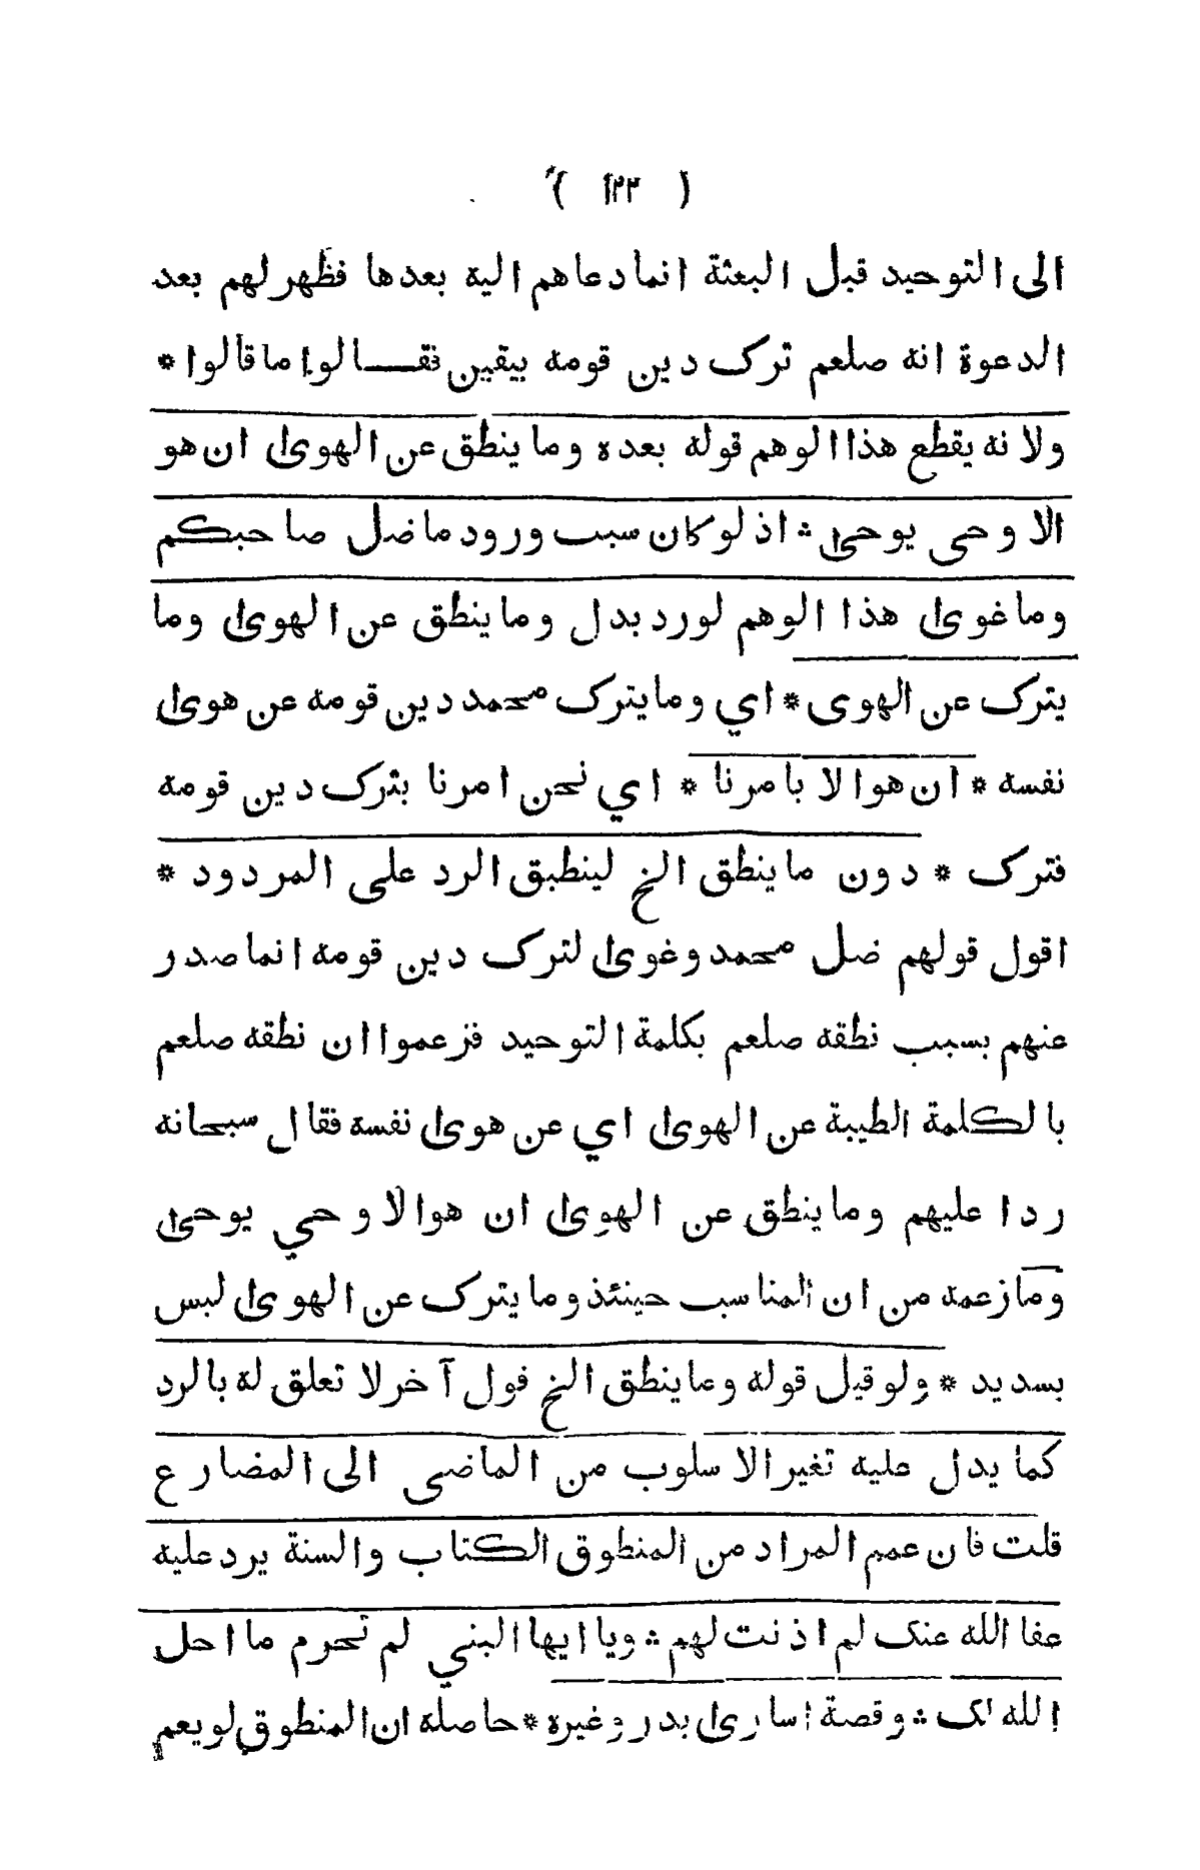 ( ١٢٣ )
الى التوحيد قبل البعثة انما دعاهم اليه بعدها فظهر لهم بعد
الدعوة انه صلعم ترك دين قومه بيقين نقـــالوا ما قالوا *
ولا نه يقطع هذا الوهم قوله بعده وما ينطق عن الهوى ان هو
الا وحى يوحى * اذ لو كان سبب ورود ما ضل صاحبكم
وما غوى هذا الوهم لورد بدل وما ينطق عن الهوى وما
يترك عن الهوى * اي وما يترك محمد دين قومه عن هوى
نفسه * ان هو الا بامرنا * اي نحن امرنا بترك دين قومه
فترك * دون ما ينطق الخ لينطبق الرد على المردود *
اقول قولهم ضل محمد وغوى لترك دين قومه انما صدر
عنهم بسبب نطقه صلعم بكلمة التوحيد فزعموا ان نطقه صلعم
بالكلمة الطيبة عن الهوى اي عن هوى نفسه فقال سبحانه
ردا عليهم وما ينطق عن الهوى ان هو الا وحي يوحى
وما زعمه من ان المناسب حينئذ وما يترك عن الهوى لبس
بسديد * ولو قيل قوله وما ينطق الخ قول آخر لا تعلق له بالرد
كما يدل عليه تغير الا سلوب من الماضى الى المضارع
قلت فان عمم المراد من المنطوق الكتاب والسنة يرد عليه
عفا الله عنك لم اذنت لهم * ويا ايها البني لم تحرم ما احل
الله لك * وقصة اسارى بدر وغيره * حاصله ان المنطوق لو يعم